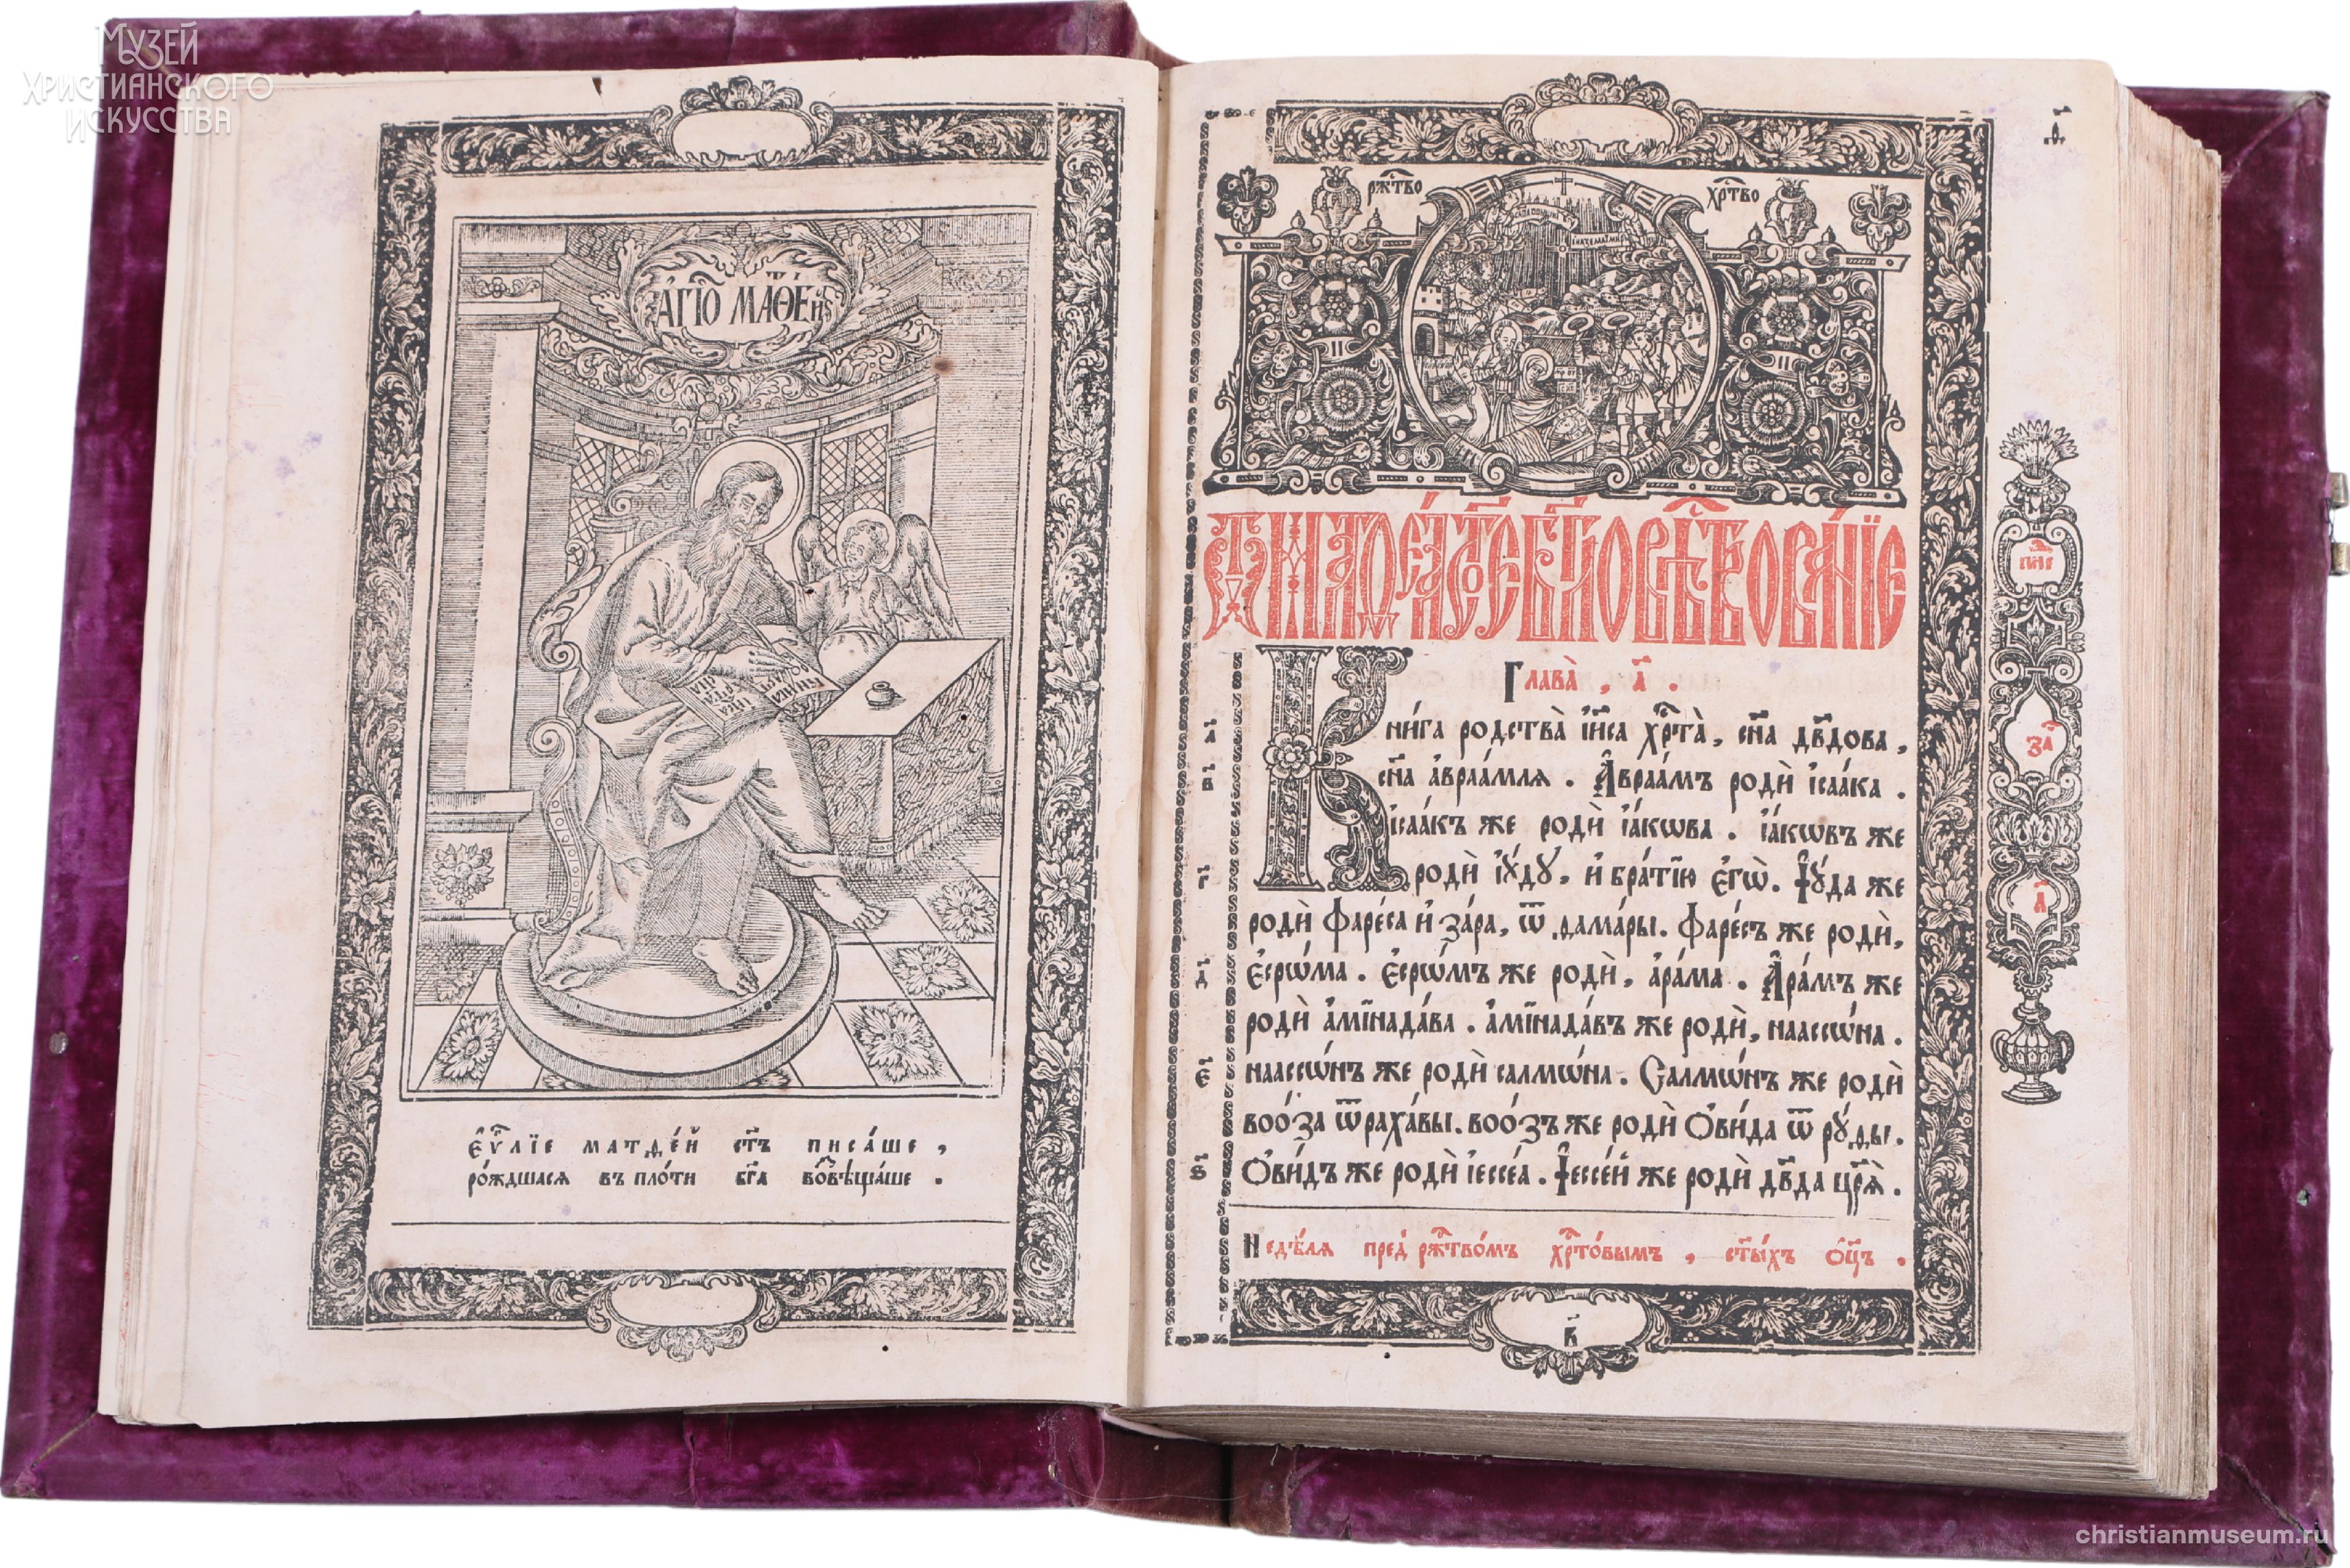 Музей
Христианского
искусства
А҆́ГІО МАѲЕй
Е҆ѵ҃ліе матѳе́й ст҃ъ писа́ше ,
ро́ждшася въ пло́ти бг҃а во́звѣща́ше .
рж҃тво хр҃тво
Глава̀ , а҃ .
Кни́га родства̀ і҆и҃са хр҃та̀ , сн҃а дв҃дова ,
а҃
сн҃а а҆враа́мля . А҆враа́мъ родѝ і҆саа́ка .
в҃
і҆саа́къ же родѝ і҆а́кѡва . і҆а́кѡвъ же
родѝ і҆ꙋ́дꙋ , и҆ бра́тїю є҆гѡ̀ . І҆ꙋ́да же
г҃
родѝ фаре́са и҆ за́ра , ѿ ѳама́ры . фаре́съ же родѝ ,
є҆срѡ́ма . є҆срѡ́мъ же родѝ , а҆ра́ма . А҆ра́мъ же
д҃
родѝ а҆мїнада́ва . а҆мїнада́въ же родѝ , наассѡ́на .
наассѡ́нъ же родѝ салмѡ́на . Салмѡ́нъ же родѝ
є҃
воо́за ѿ раха́вы . воо́зъ же родѝ О҆ви́да ѿ рꙋ́ѳы .
О҆ви́дъ же родѝ і҆ессе́а . І҆ессе́й же родѝ дв҃да цр҃ѧ̀ .
ѕ҃
Недѣ́ля пред̾ рж҃тво́мъ хр҃то́вымъ , ст҃ы́хъ ѻ҆ц҃ъ .
в҃
за҃
а҃
christianmuseum.ru